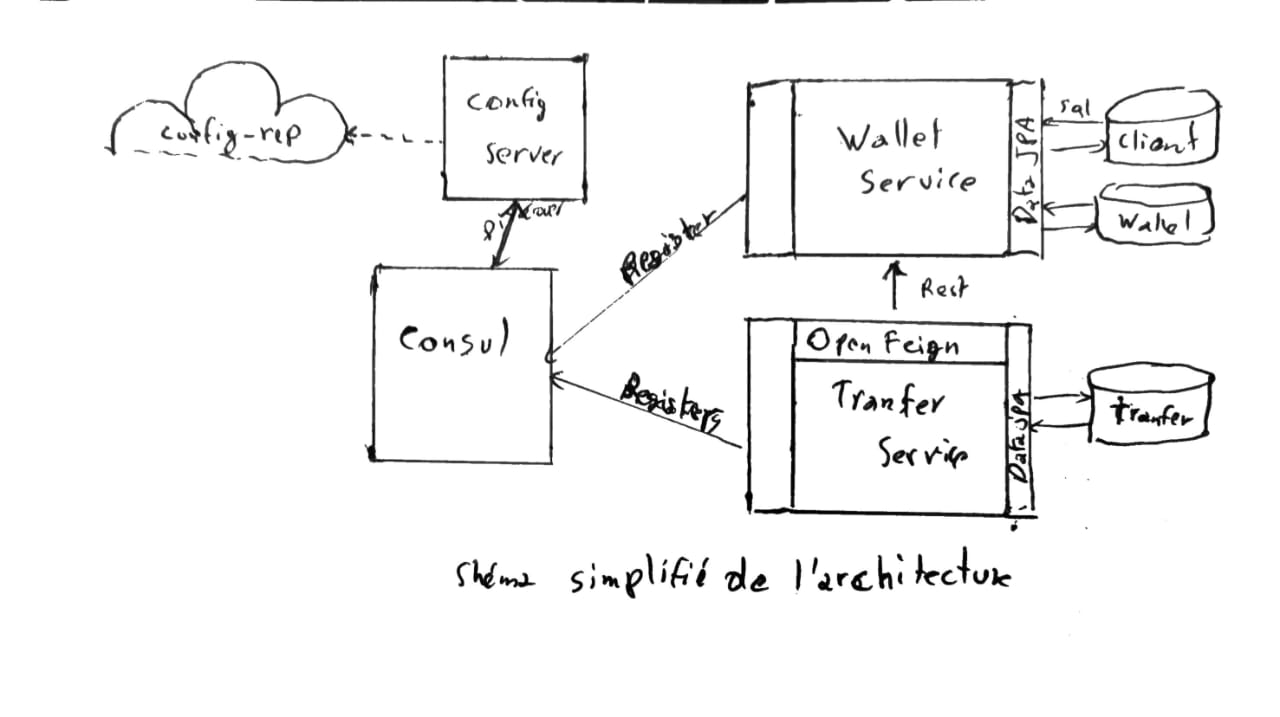 config-rep
Config
Server
Consul
Register
Registers
Wallet
Service
Data JPA
sql
Client
Wallet
Rest
Open Feign
Tranfer
Service
Data JPA
tranfer
Shéma simplifié de l'architecture